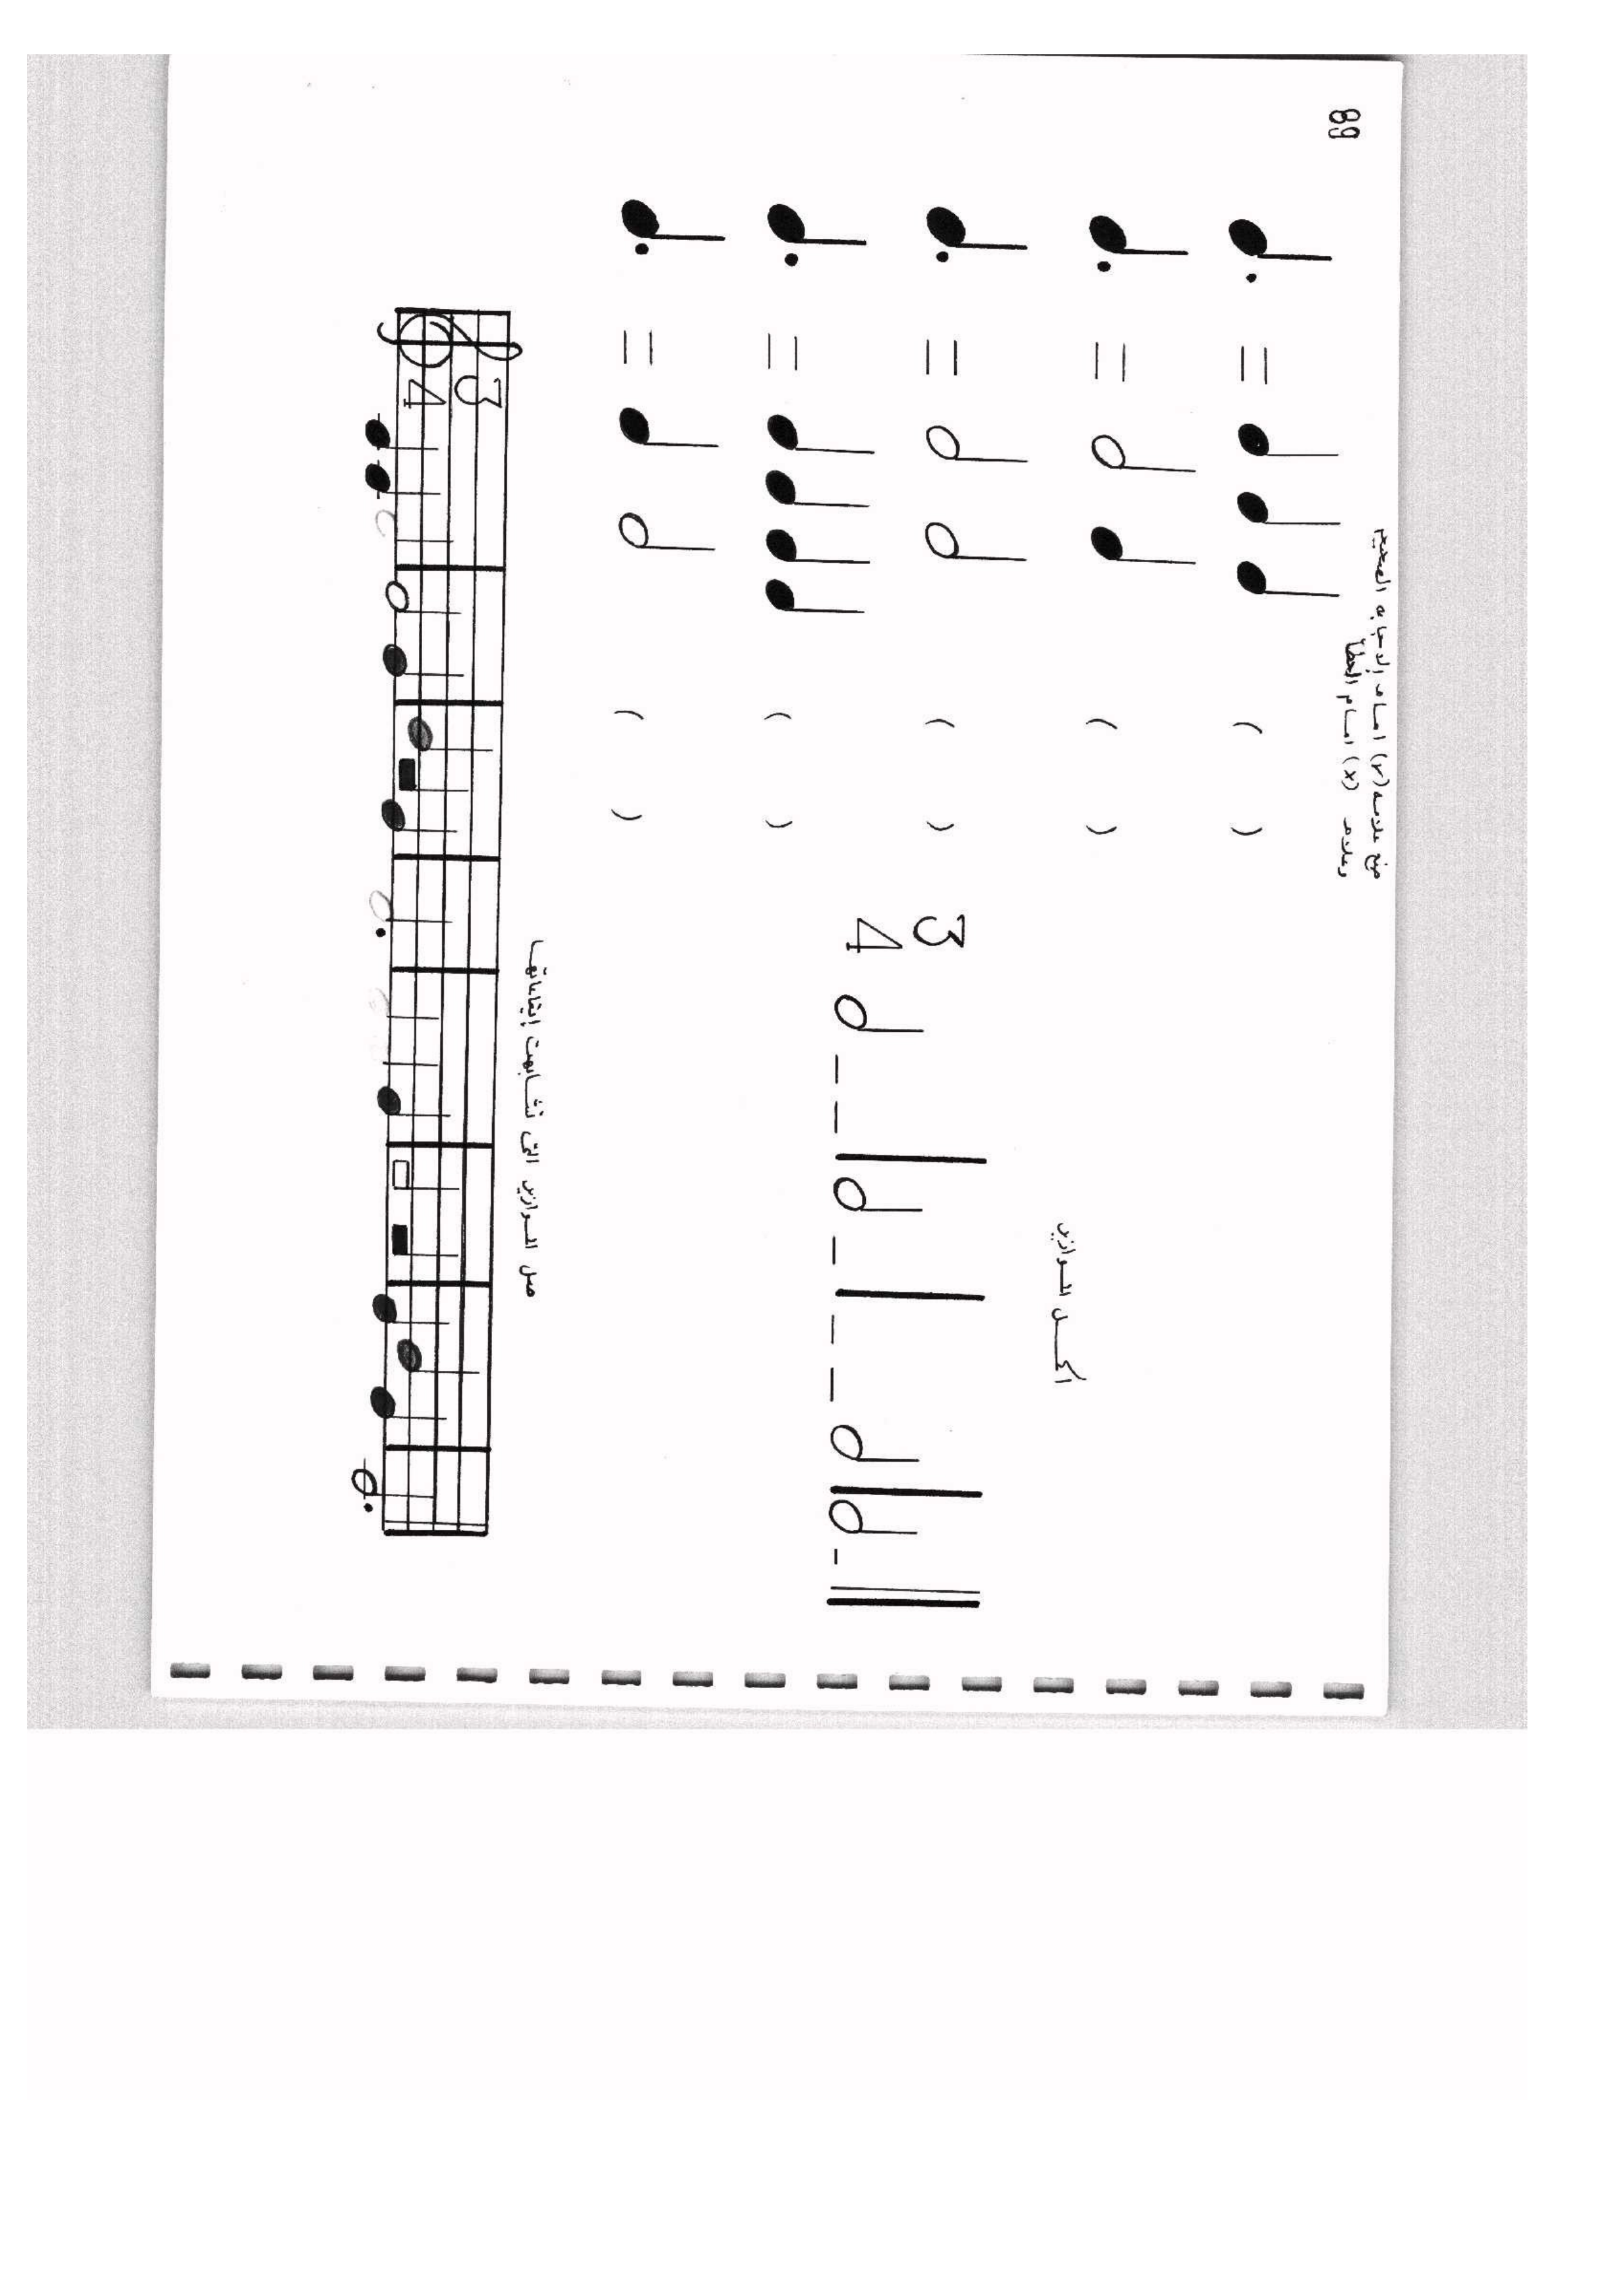 89
ضع علامة (√) امام الاجابه الصحيحه
وعلامه (x) امام الخطأ
( )
( )
( )
( )
( )
3
4
اكمل الموازير
صل الموازير التى تشابهت إيقاعاتها
3
4